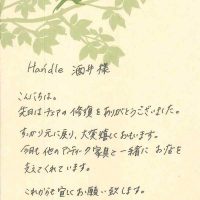 Handle 酒井様
こんにちは。
先日はチェアの修復をありがとうございました。
すっかり元に戻り、大変嬉しくおもいます。
今日も他のアンティーク家具と一緒にお店を
支えてくれています。
これからも宜しくお願い致します。